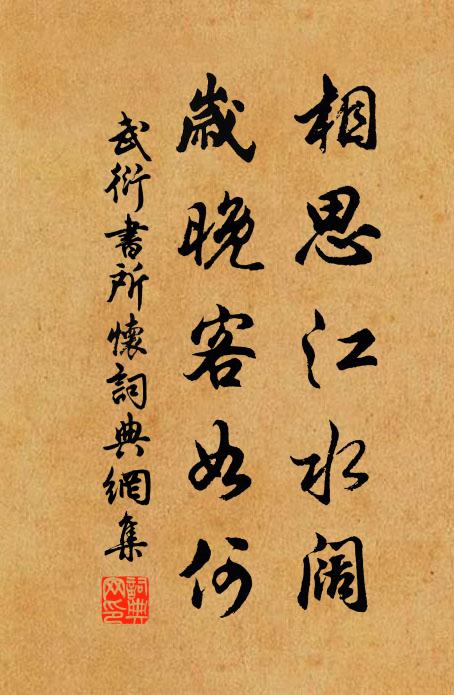 相思江水阔
歲晚客如何
武衍書所懷詞典網集
詞典網印